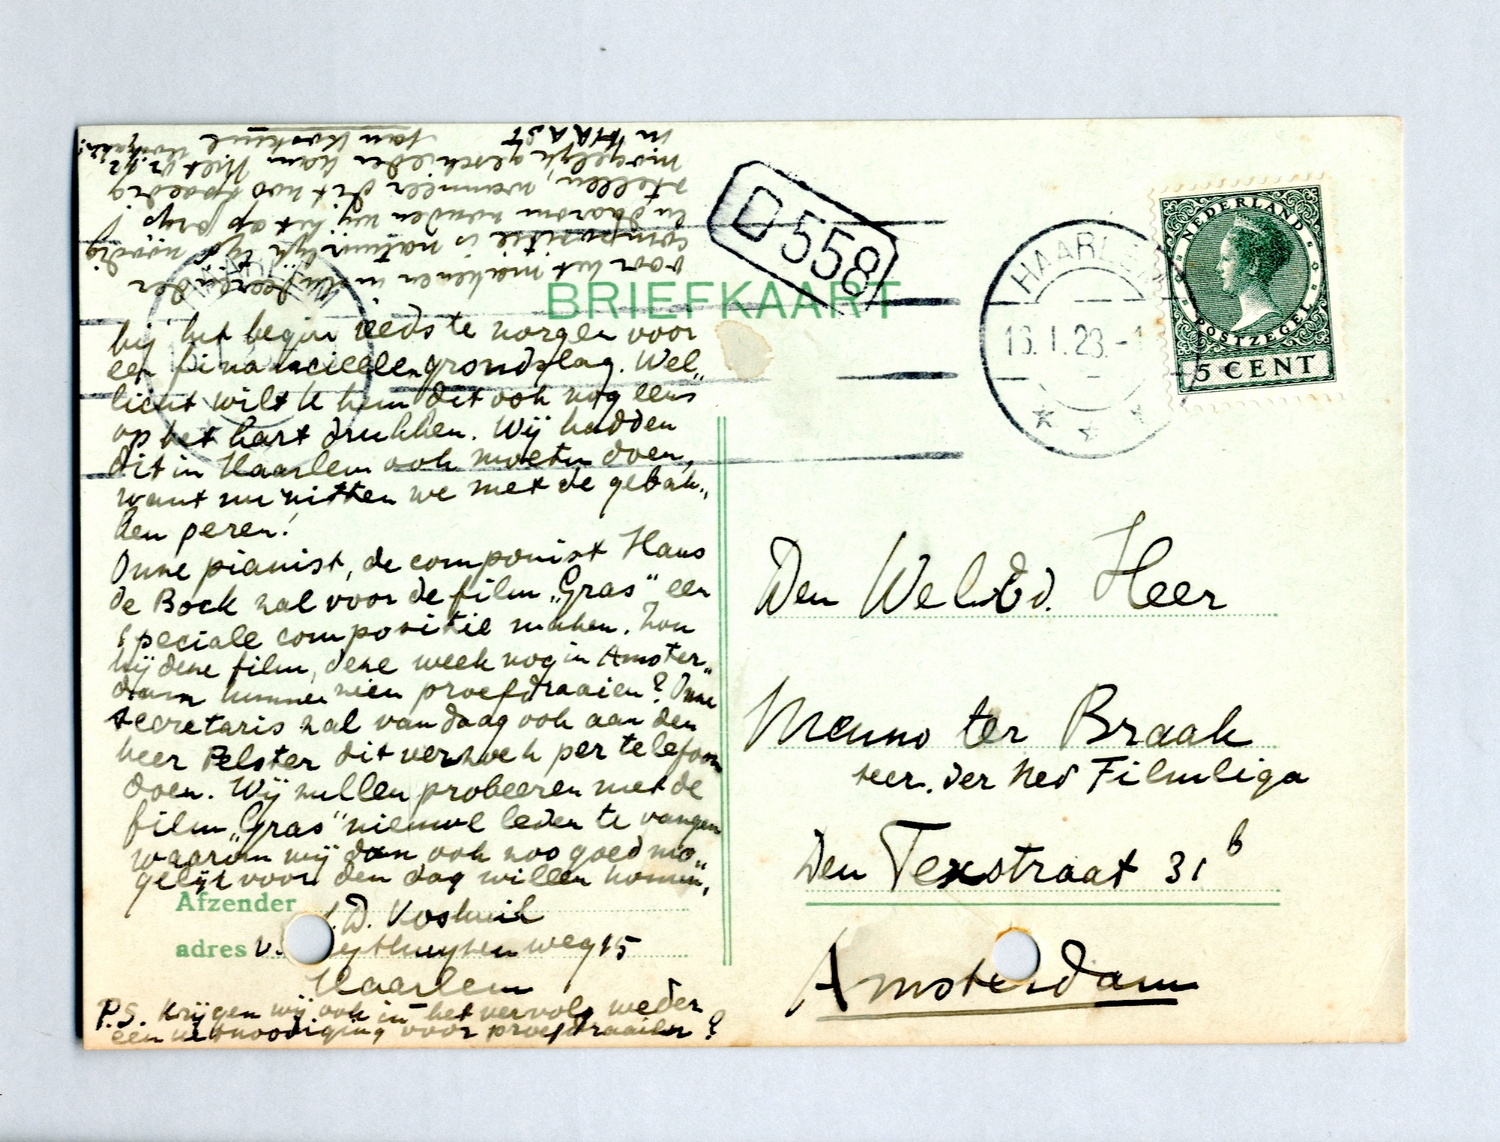 bij het begin reeds te zorgen voor
een financieelen grondslag. Wel„
licht wilt U hem dit ook nog eens
op het hart drukken. Wij hadden
dit in Haarlem ook moeten doen,
want nu zitten we met de gebak„
ken peren!
Onze pianist, de componist Hans
de Bock zal voor de film „Gras" een
speciale compositie maken. Zou
hij deze film, deze week nog in Amster„
dam kunnen zien proefdraaien? Onze
secretaris zal vandaag ook aan den
heer Pelster dit verzoek per telefoon
doen. Wij zullen probeeren met de
film „Gras" nieuwe leden te vangen
waarom wij dan ook zoo goed mo„
gelijk voor den dag willen komen,
voor het maken
compositie is natuurlijk tijd noodig
en daarom zouden wij het op prijs
stellen, wanneer dit zoo spoedig
mogelijk geschieden kan.
in HAAST
Afzender D. Koskuil
adres weg 15
Haarlem
P.S. Krijgen wij ook in het vervolg weder
een uitnoodiging voor proefdraaien?
BRIEFKAART
D 558
HAARLEM
16.I.28.-1
NEDERLAND
POSTZEGEL
5 CENT
Den WelEd. Heer
Menno ter Braak
secr. der Ned Filmliga
Den Texstraat 31 b
Amsterdam